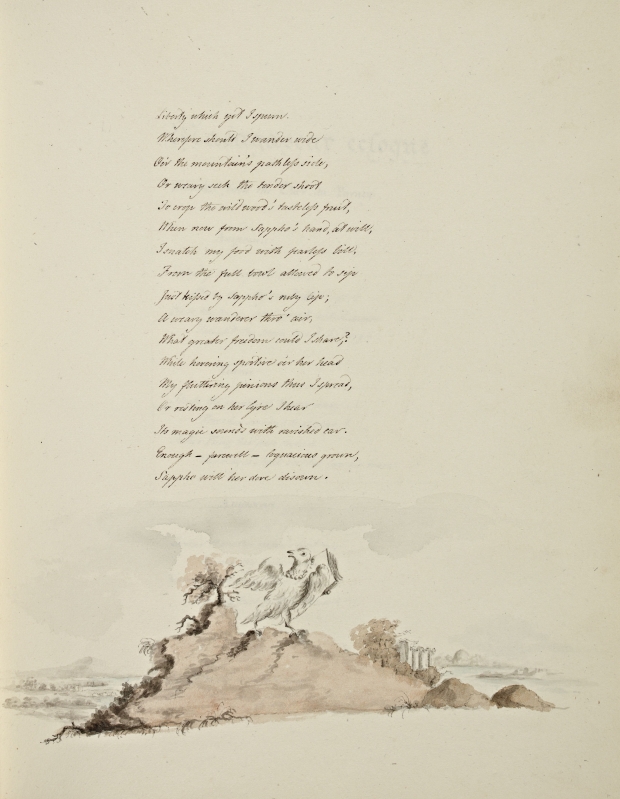 Liberty which yet I spurn.
Wherefore should I wander wide
O'er the mountain's pathless side,
Or weary seek the tender shoot
To crop the wild wood's tasteless fruit,
When now from Sappho's hand, at will,
I snatch my food with fearless bill,
From the full bowl allowed to sip
Just kissed by Sappho's ruby lip;
A weary wanderer thro' air,
What greater freedom could I share,?
While hovering sportive o'er her head
My fluttering pinions thus I spread,
Or resting on her lyre I hear
Its magic sounds with ravished ear.
Enough – farewell – loquacious grown,
Sappho will her dove disown.